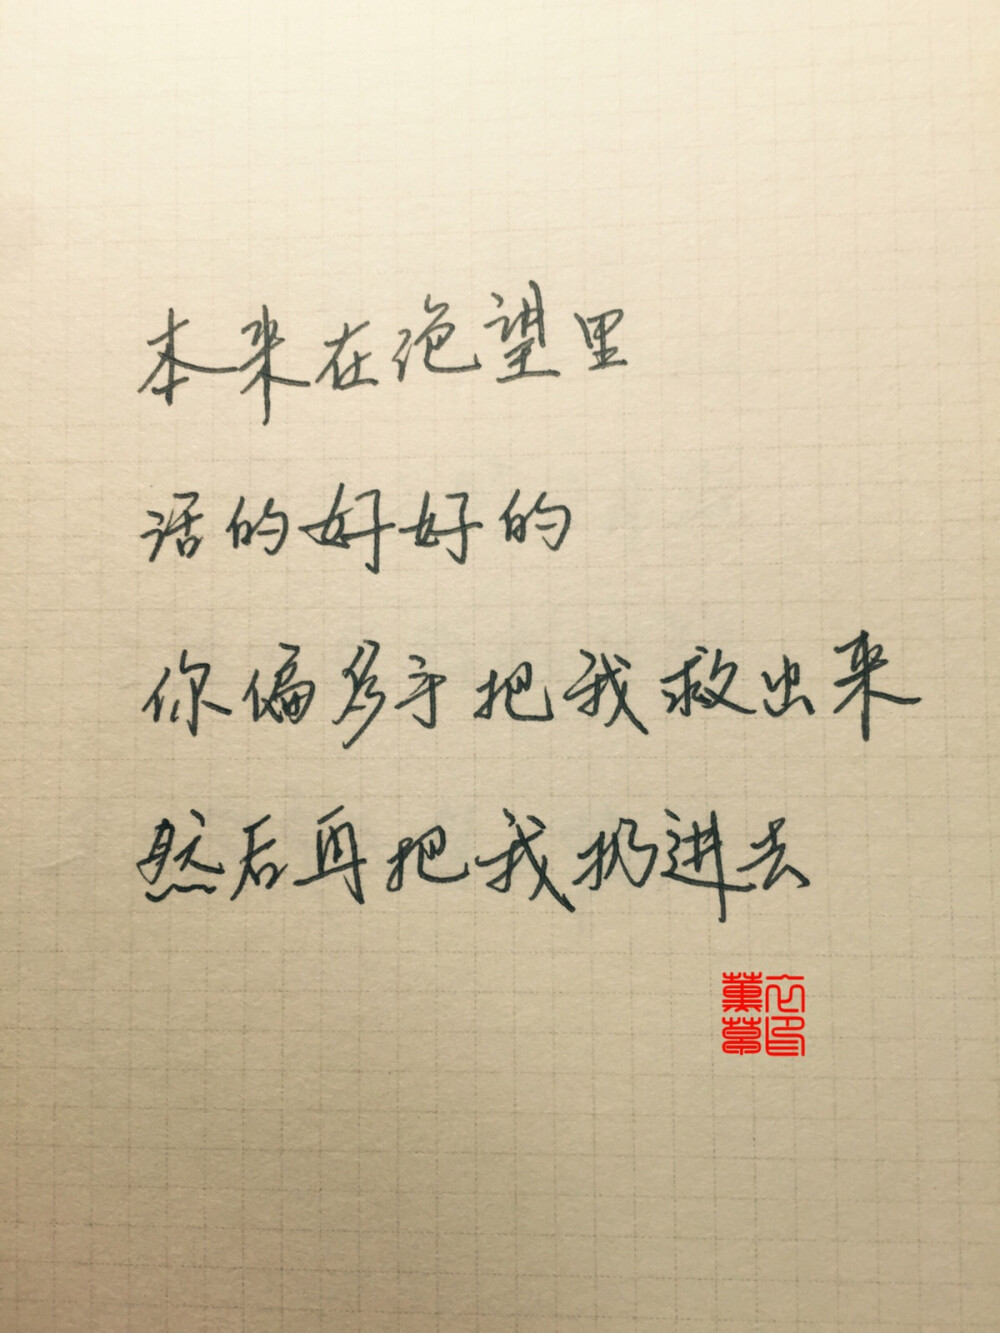 本来在绝望里
活的好好的
你偏多手把我救出来
然后再把我扔进去